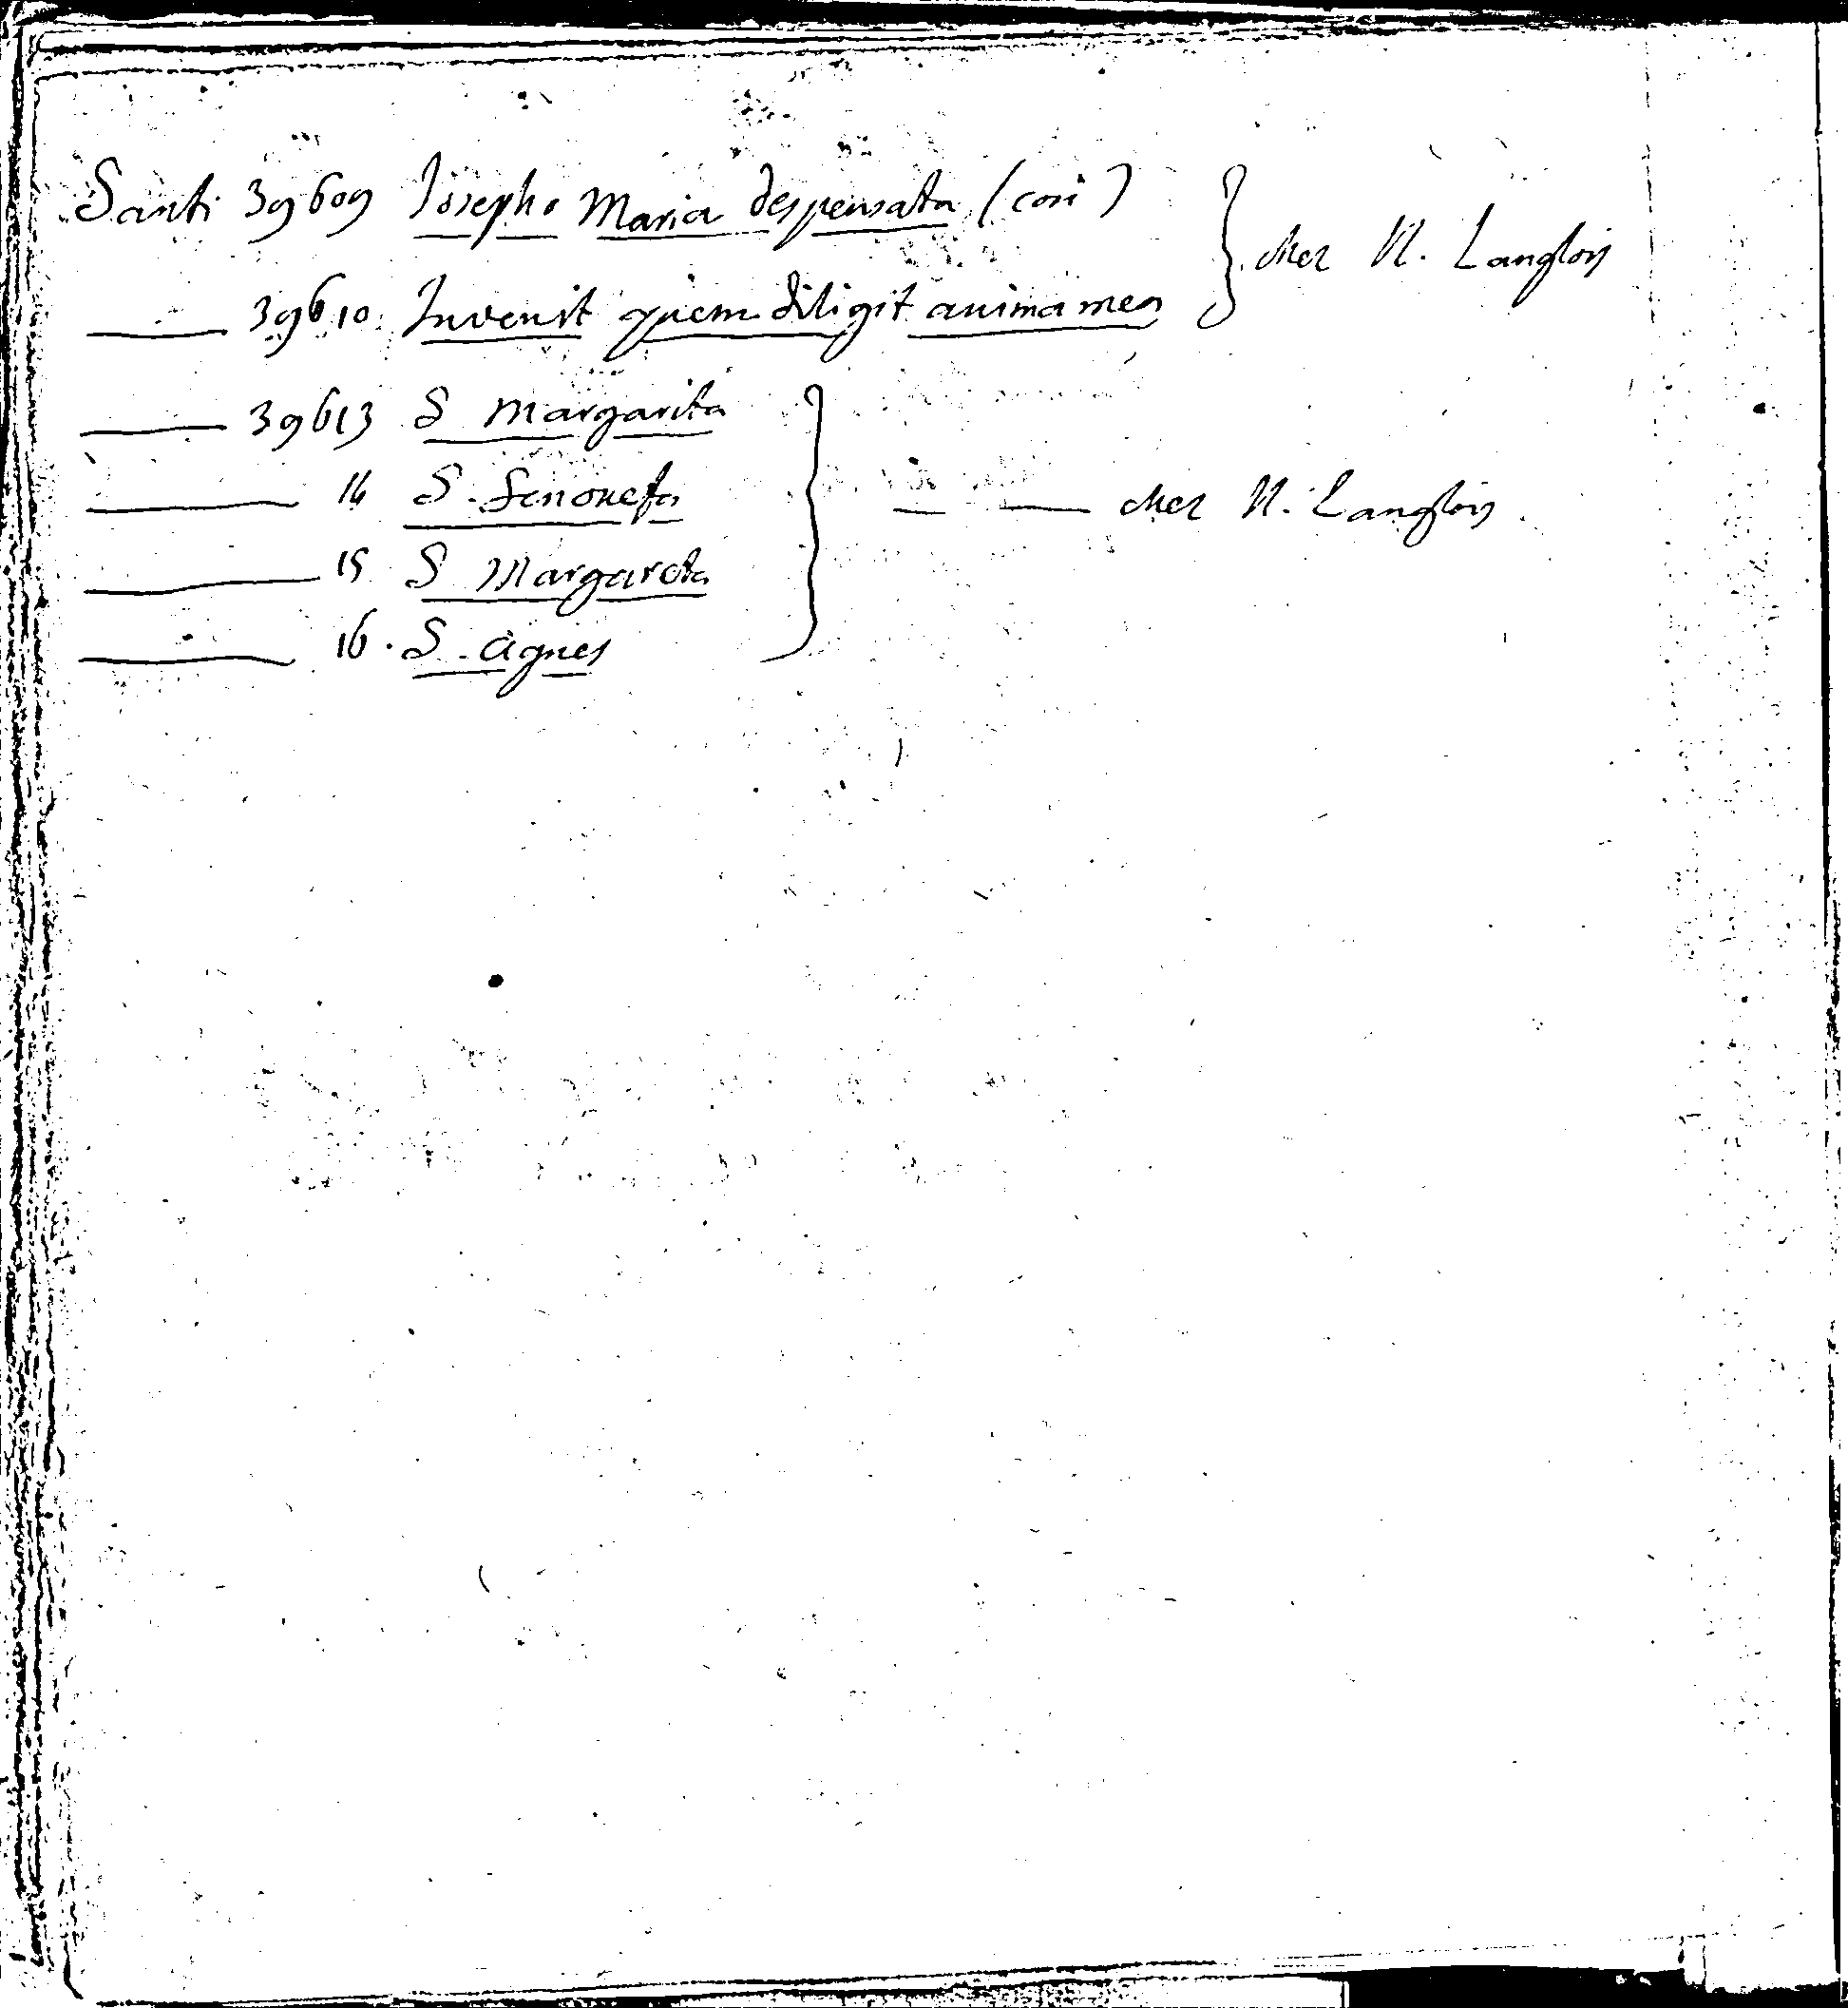 Santi 39609 Josepho Maria despensata (così) } chez N. Langlois
—— 39610 Invenit quem diligit anima mea
—— 39613 S Margarita
—— 14 S. Genovefa } — — chez N. Langlois
—— 15 S Margareta
—— 16. S. Agnes